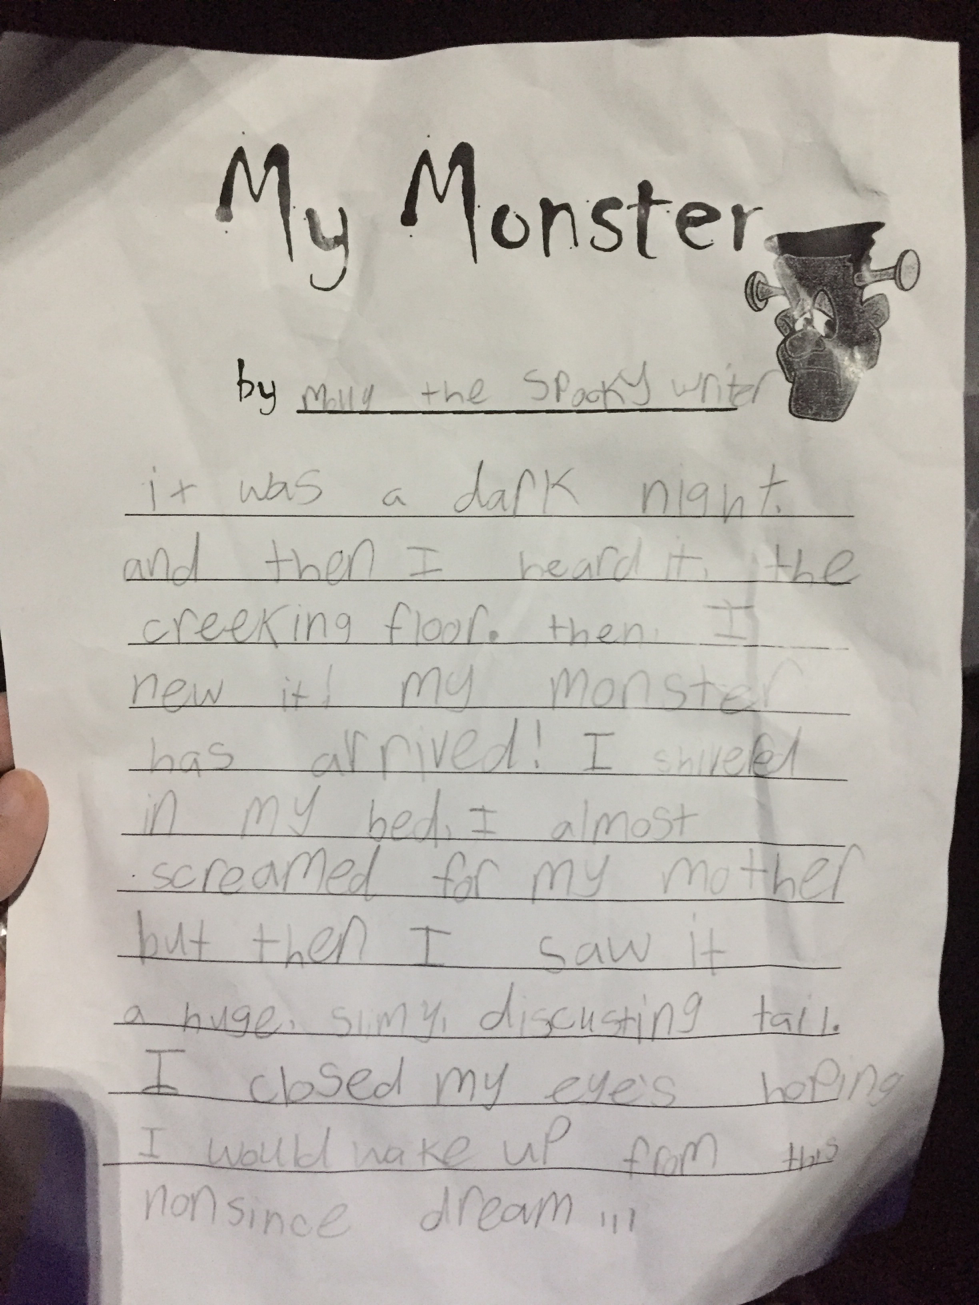 My Monster
by Molly the spooky writer
it was a dark night.
and then I heard it, the
creeking floor. then I
new it! my monster
has arrived! I shivered
in my bed, I almost
screamed for my mother
but then I saw it
a huge, slmy, discusting tail.
I closed my eye's hoping
I would wake up from this
nonsince dream !!!